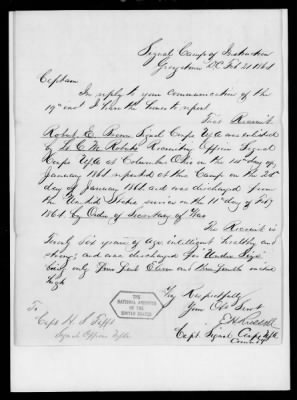 Signal Camp of Instruction
Georgetown DC Feb 21 1864
Captain
In reply to your communication of the
19th inst I have the honor to report
This Recruit
Robert E. Brown Signal Corps USA was enlisted
by Lt C. M. Roberts Recruiting Officer Signal
Corps USA at Columbus Ohio on the 14th day of
January 1864 reported at this Camp on the 20th
day of January 1864 and was discharged from
the United States service on the 11th day of Feby
1864 by Order of Secretary of War
The Recruit is
Twenty Six years of age intelligent healthy and
strong and was discharged for "Under Size"
being only Four feet Eleven and inches
high
Very Respectfully
Your Obt Servt
E H Russell
Capt Signal Corps USA
Comdg
To
Capt H. S. Tafft
Signal Officer USA
THE
NATIONAL ARCHIVES
OF THE
UNITED STATES